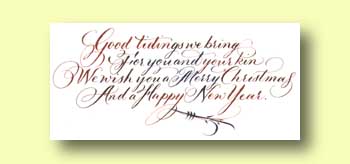 Good tidings we bring
For you and your kin
We wish you a Merry Christmas
And a Happy New Year.